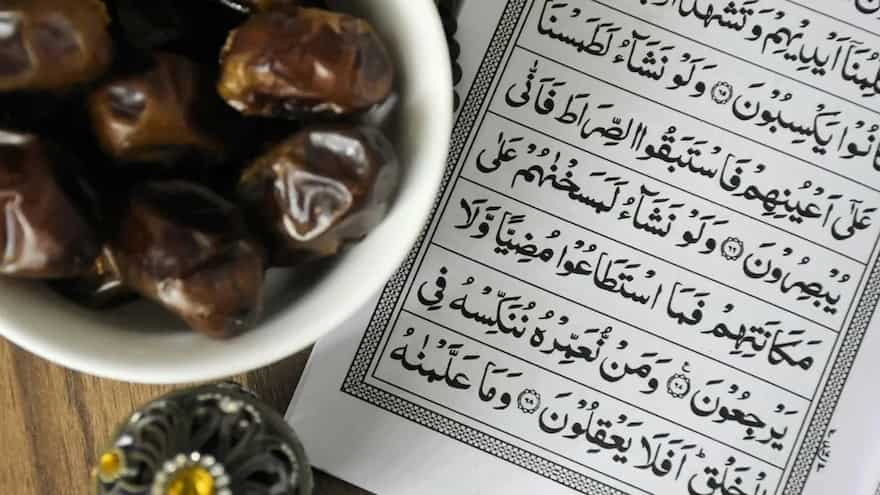 اَيْدِيْهِمْ وَتَشْهَدُ
كَانُوْا يَكْسِبُوْنَ ۝۶۵ وَلَوْ نَشَآءُ لَطَمَسْنَا
عَلٰۤى اَعْيُنِهِمْ فَاسْتَبَقُوا الصِّرَاطَ فَاَنّٰى
يُبْصِرُوْنَ ۝۶۶ وَلَوْ نَشَآءُ لَمَسَخْنٰهُمْ عَلٰى
مَكَانَتِهِمْ فَمَا اسْتَطَاعُوْا مُضِيًّا وَّلَا
يَرْجِعُوْنَ ۝۶۷ وَمَنْ نُّعَمِّرْهُ نُنَكِّسْهُ فِي
الْخَلْقِ ؕ اَفَلَا يَعْقِلُوْنَ ۝۶۸ وَمَا عَلَّمْنٰهُ